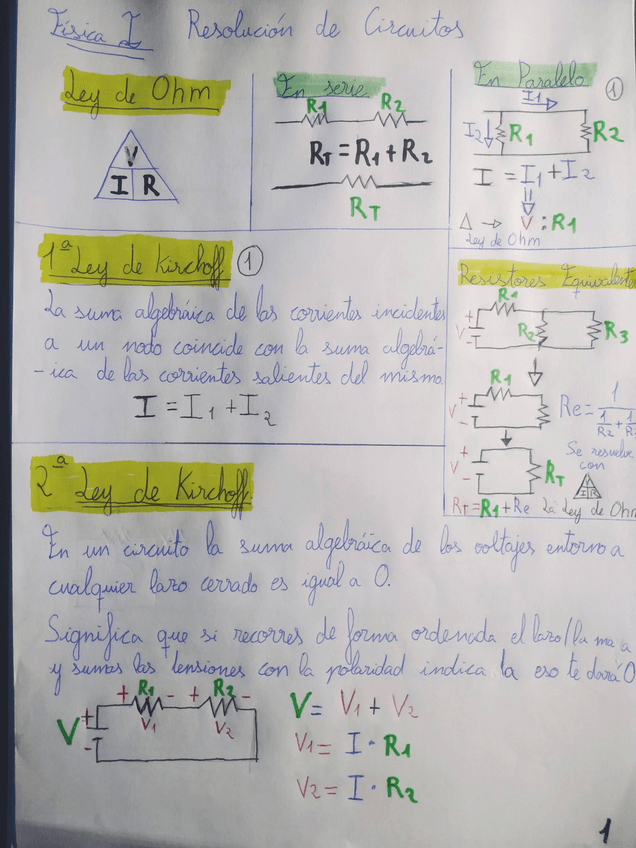 Física I Resolución de Circuitos
Ley de Ohm
V
I R
En serie
R1 R2
RT = R1 + R2
RT
En Paralelo
1
I1
I2 R1 R2
I = I1 + I2
Δ → V : R1
Ley de Ohm
1ª Ley de Kirchoff 1
La suma algebráica de las corrientes incidentes
a un nodo coincide con la suma algebrá-
-ica de las corrientes salientes del mismo
I = I1 + I2
Resistores Equivalentes
R1
+
V R2 R3
-
R1
+
V Re = 1
- 1/R2 + 1/
Se resuelve
con
+
V RT
-
I R
RT = R1 + Re La Ley de Ohm
2ª Ley de Kirchoff
En un circuito la suma algebráica de los voltajes entorno a
cualquier lazo cerrado es igual a 0.
Significa que si recorres de forma ordenada el lazo/la ma a
y sumas las tensiones con la polaridad indica la eso te dará 0
+ R1 - + R2 -
V + V1 V2
-
V = V1 + V2
V1 = I · R1
V2 = I · R2
1